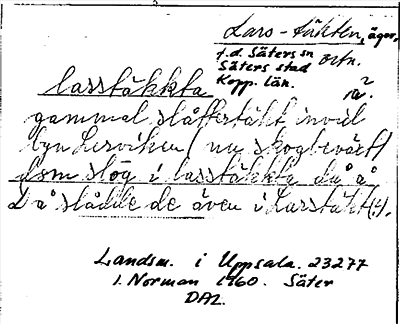 Lars-täkten, äger.
f.d. Säters sn ortn.
Säters stad
Kopp. län.
lasstäkkta
gammal slåttertäkt invid
byn Lerviken (nu skogbeväxt)
dom slog i lasstäkkta då å
Då slådde de även i Larstäkt(?).
Landsm. i Uppsala. 23277
I. Norman 1960. Säter
DAL.